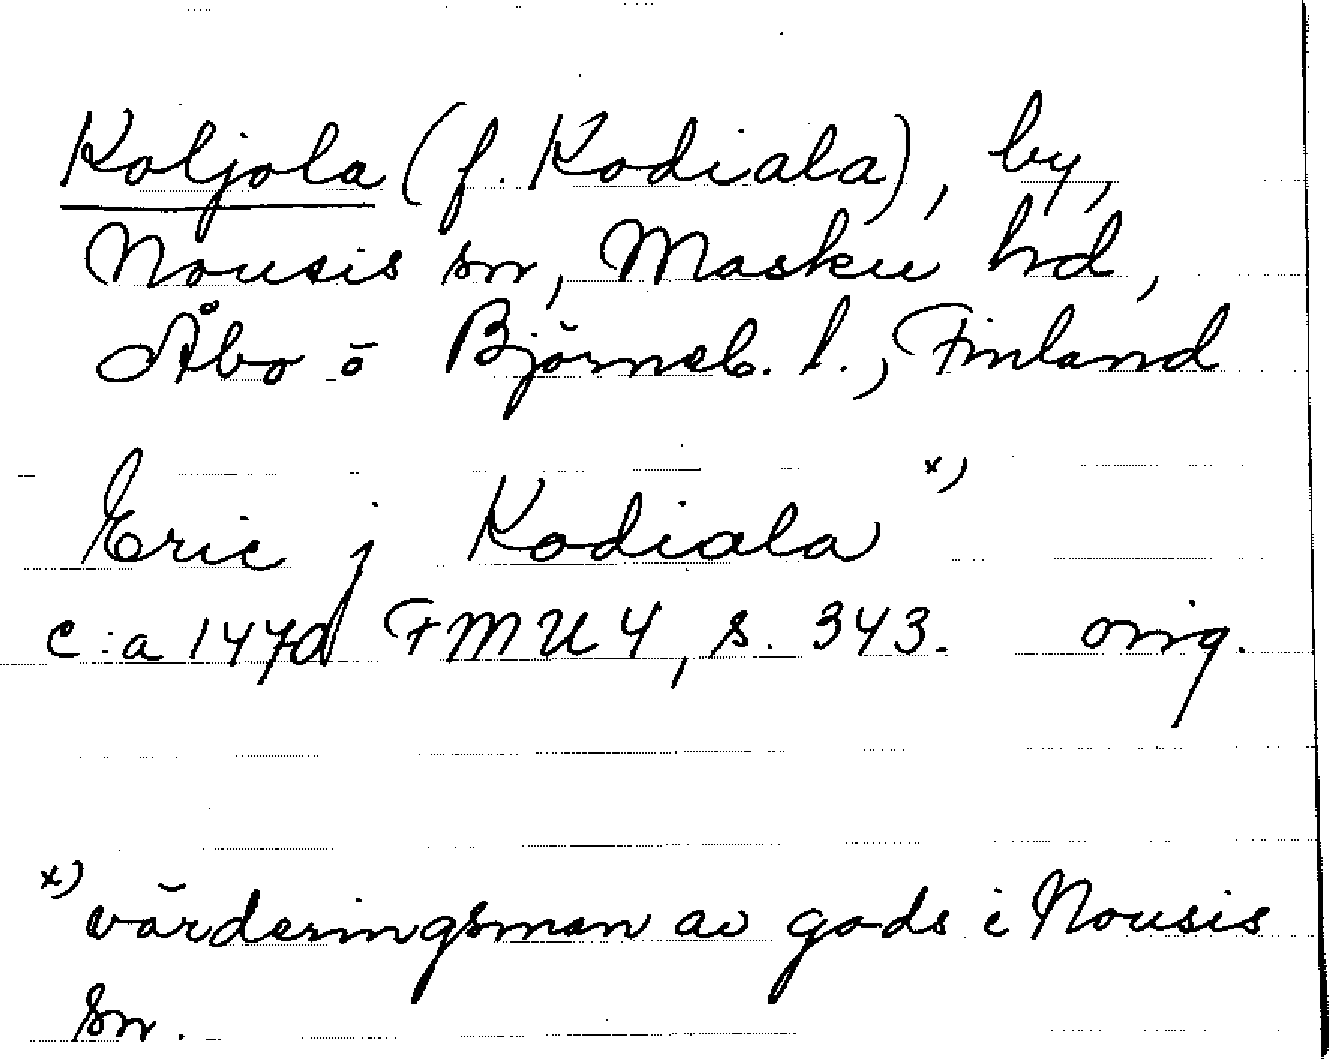 Koljola (f. Kodiala), by,
Nousis sn, Masku hd,
Åbo ō Björneb. l., Finland
Eric j Kodiala x)
c:a 1470 FMU 4, s. 343. orig.
x) värderingsman av gods i Nousis
sn.